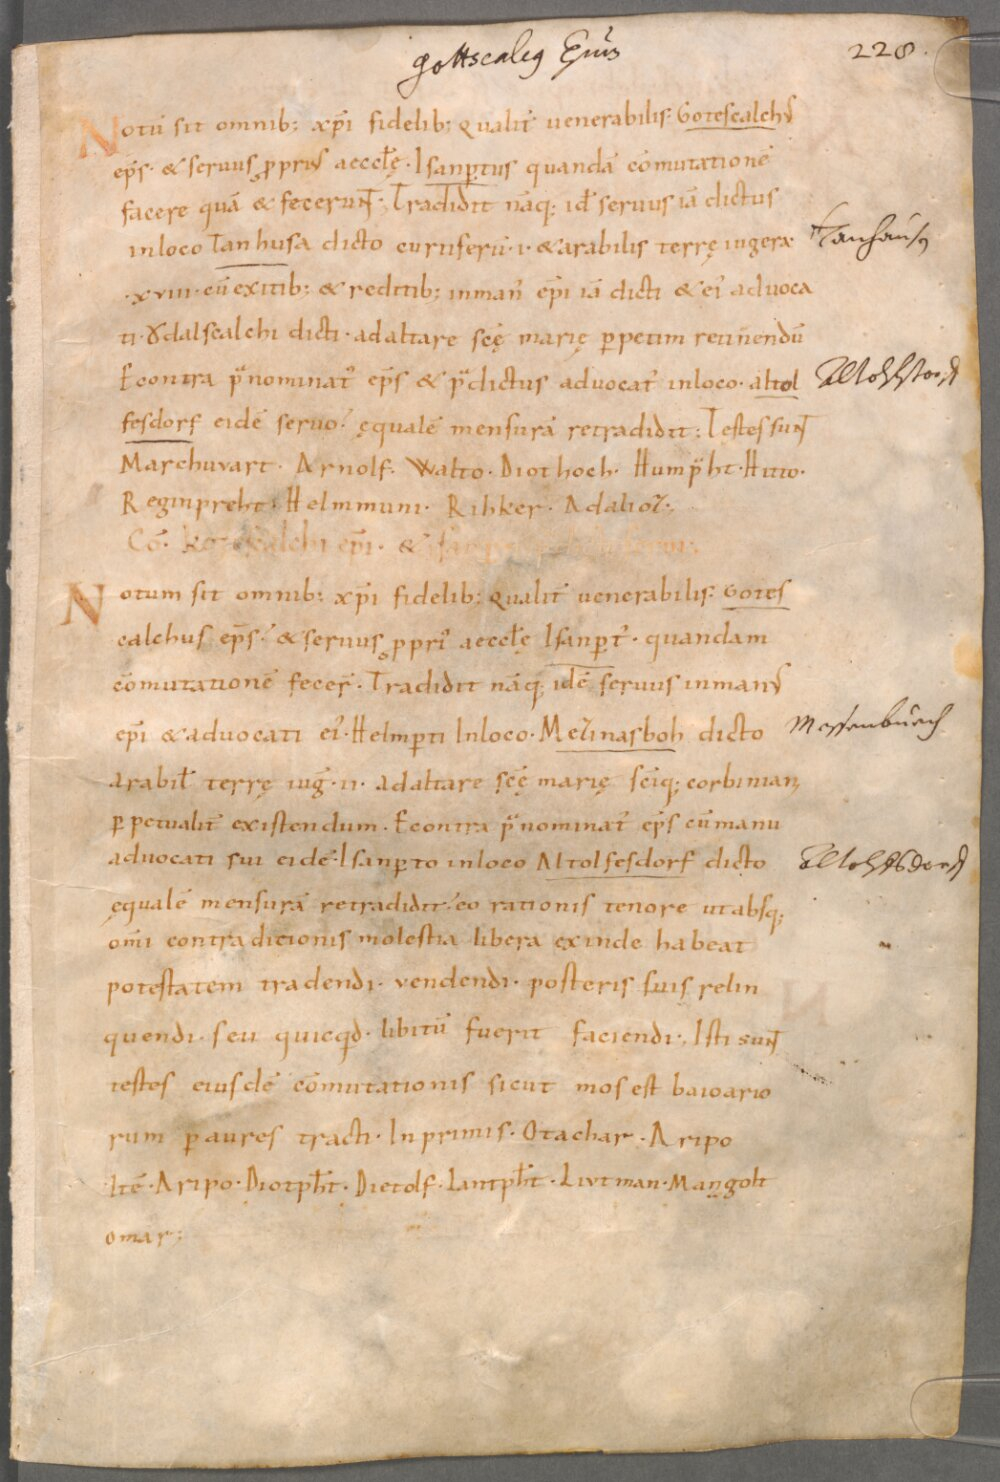 Gottscalcg Epūs
228.
Notū sit omnib; xp̄i fidelib; qualit̄ uenerabilis: Gotescalchus
ep̄s. & seruus ꝓprius aeccłę. Isanp̱tus quandā cōmutationē
facere quā & fecerun̄t. Tradidit nāq; id̄ seruus iā dictus
in loco Tanhusa dicto curtiferū .i. & arabilis terrę iugera Tanhausz
.xviii. cū exitib; & reditib; in man̄ ep̄i iā dicti & ei᾽ aduoca
ti. Ꝩdalscalchi dicti. ad altare scę̄ marię p̱petim retin̄endū
Econtra p̄nominat᾽ ep̄s & p̄dictus aduocat᾽ in loco. altol
fesdorf eidē seruo. ęqualē mensurā retradidit: Testes sun̄t
Marchuuart. Arnolf. Walto. Diothoch. Hump̄ht. Hitto.
Reginpreht. Helmmuni. Rihker. Adalioz.
Cō. ep̄i. &
Notum sit omnib; xp̄i fidelib; qualit̄ uenerabilis: Gotes
calchus ep̄s. & seruus ꝓpri᾽ aeccłę Isanp̱t᾽. quandam
cōmutationē fecer̄. Tradidit nāq; idē seruus in manus
ep̄i & aduocati ei᾽. Helmp̱ti In loco. Mezinasboh dicto
arabił terrę iuḡ .ii. ad altare scę̄ marię sc̄iq; corbiniani
p̱petualit̄ existendum. Econtra p̄nominat᾽ ep̄s cū manu
aduocati sui eidē. Isanp̱to in loco Altolfesdorf dicto
ęqualē mensurā retradidit. eo rationis tenore ut absq;
om̄i contradictionis molestia libera exinde habeat
potestatem tradendi. vendendi. posteris suis relin
quendi. seu quicq̄d. libitū fuerit faciendi. Isti sun̄t
testes eiusdē cōmutationis sicut mos est baioario
rum p̱ aures tracti. In primis. Otachar. Aripo
Itē. Aripo. Diotp̄ht. Dietolf. Lantp̄ht. Liutman. Mangolt
omar;